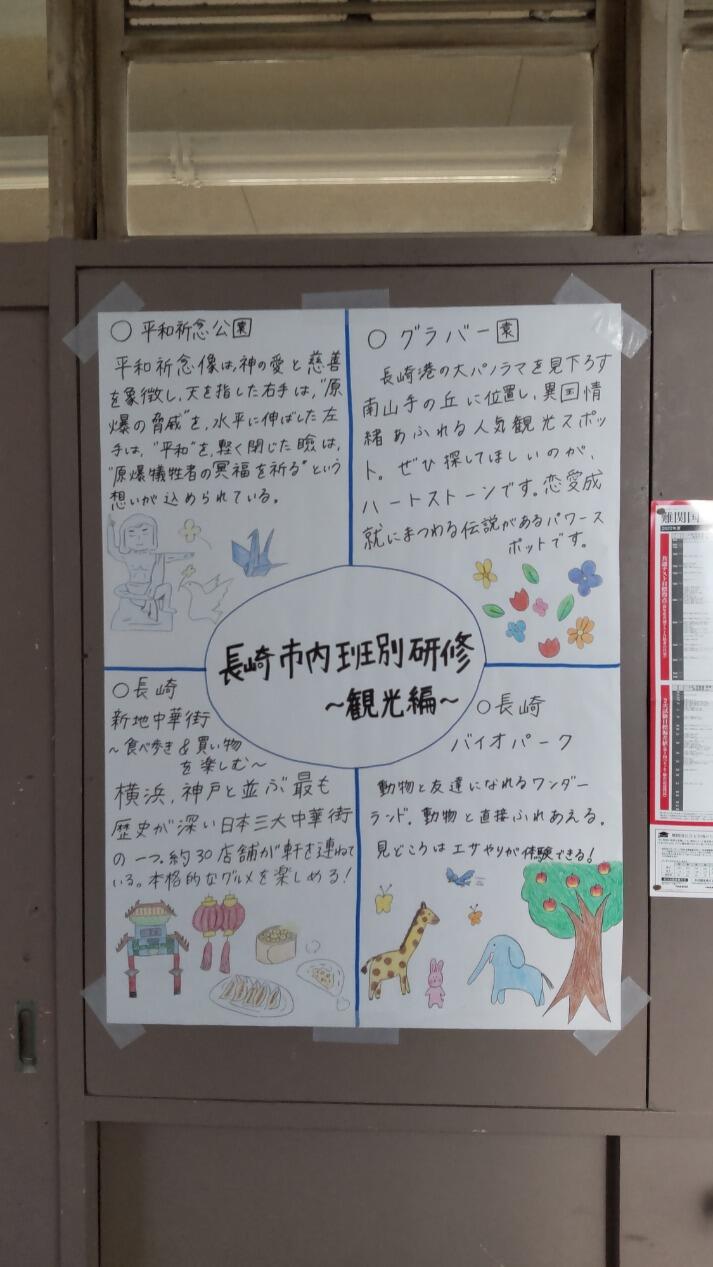 ○ 平和祈念公園
平和祈念像は、神の愛と慈善
を象徴し、天を指した右手は、"原
爆の脅威"を、水平に伸ばした左
手は、"平和"を、軽く閉じた瞼は、
"原爆犠牲者の冥福を祈る"という
想いが込められている。
○ グラバー園
長崎港の大パノラマを見下ろす
南山手の丘に位置し、異国情
緒あふれる人気観光スポッ
ト。ぜひ探してほしいのが、
ハートストーンです。恋愛成
就にまつわる伝説があるパワース
ポットです。
長崎市内班別研修
～観光編～
○長崎
新地中華街
～食べ歩き&買い物
を楽しむ～
横浜、神戸と並ぶ最も
歴史が深い日本三大中華街
の一つ。約30店舗が軒を連ねて
いる。本格的なグルメを楽しめる!
○長崎
バイオパーク
動物と友達になれるワンダー
ランド。動物と直接ふれあえる。
見どころはエサやりが体験できる!
難関国